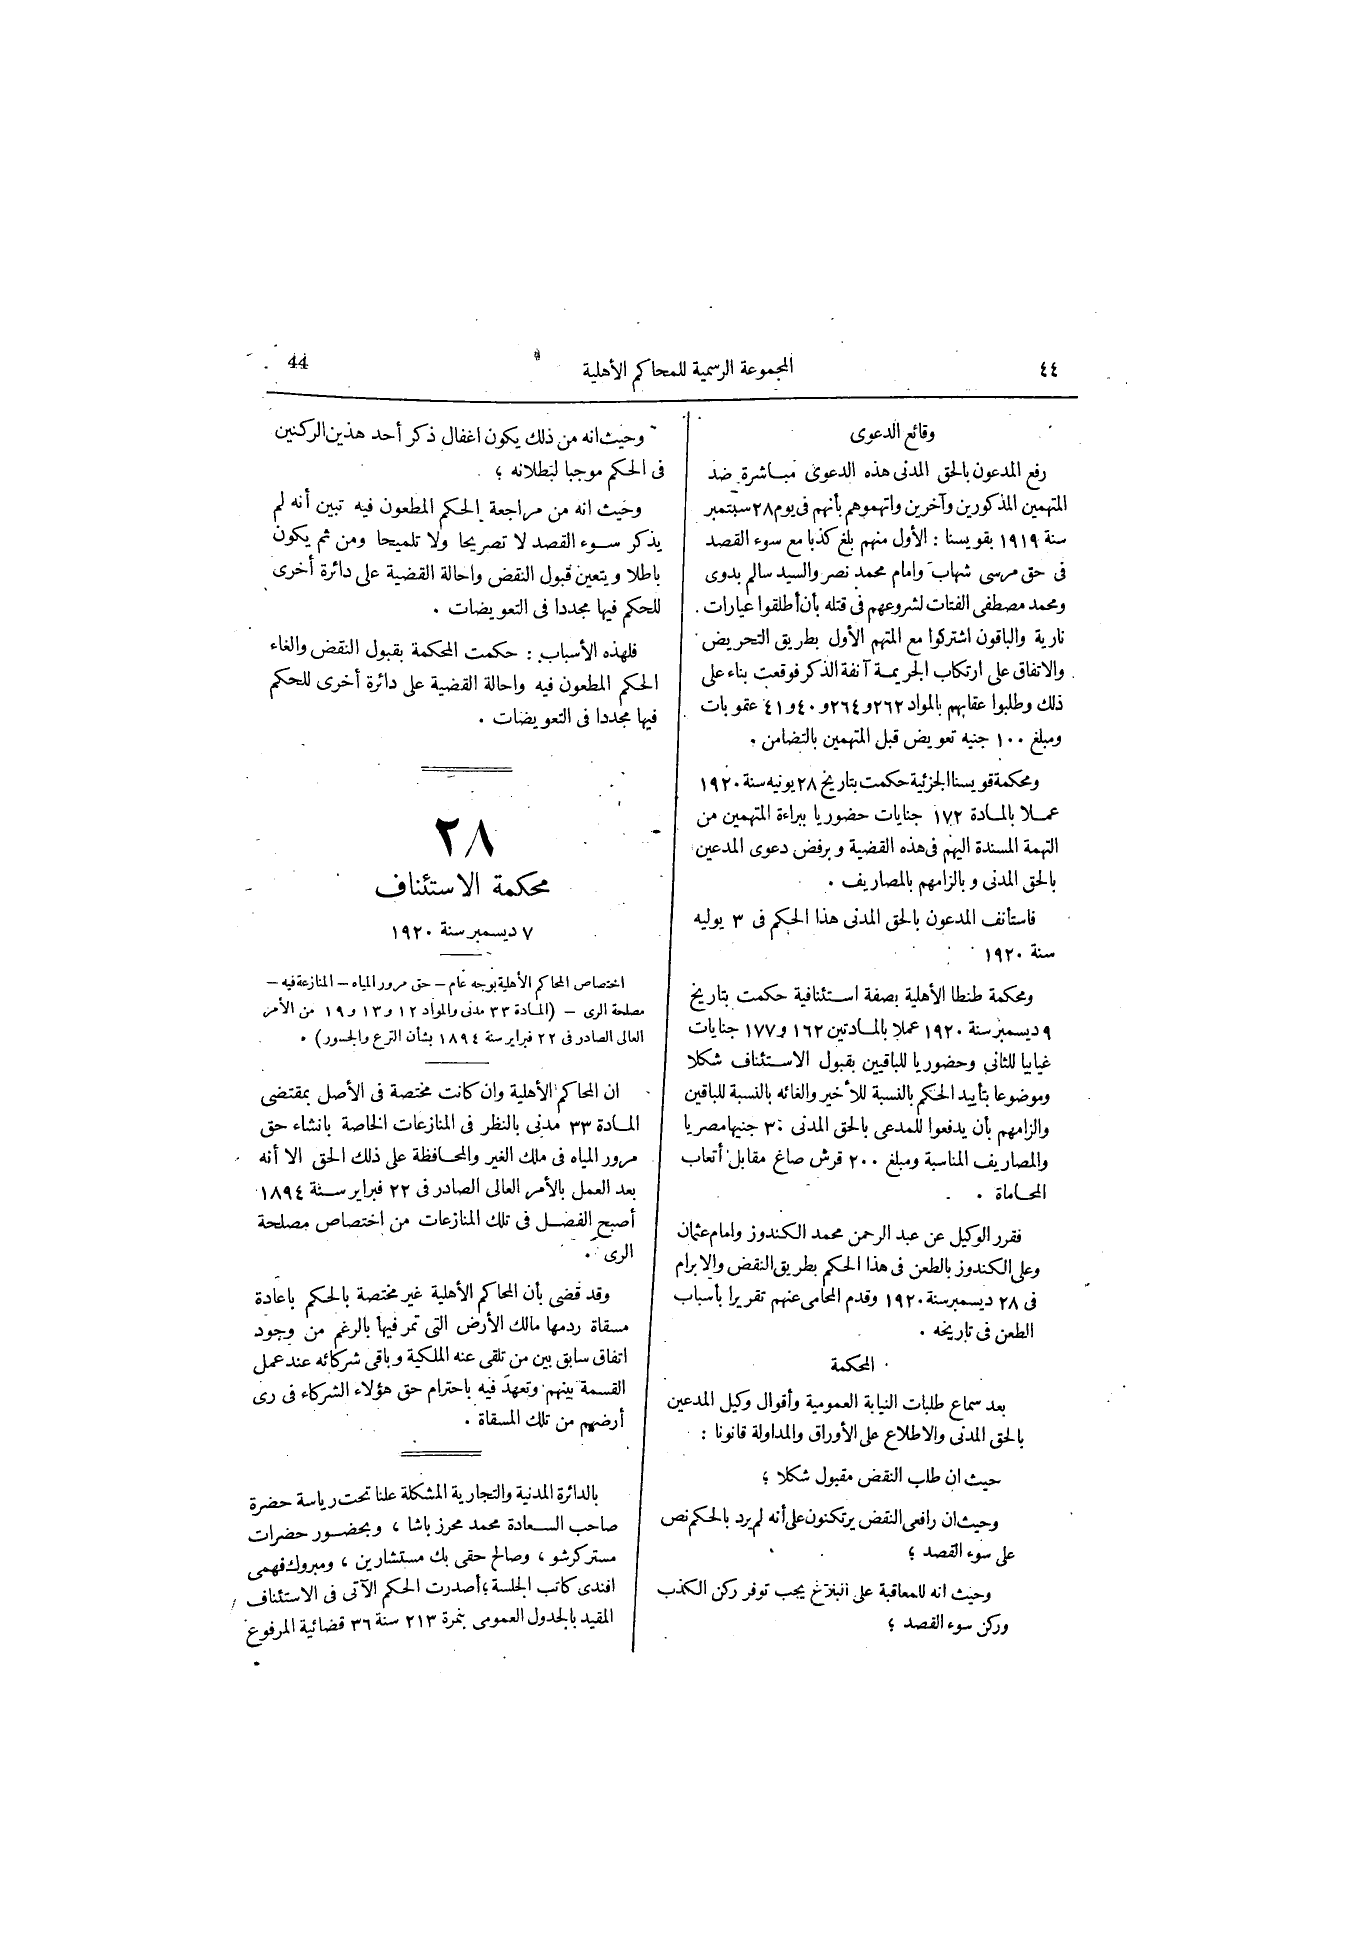 ٤٤
المجموعة الرسمية للمحاكم الأهلية
44
وقائع الدعوى
رفع المدعون بالحق المدنى هذه الدعوى مباشرة ضد
المتهمين المذكورين وآخرين واتهموهم بأنهم فى يوم ٢٨ سبتمبر
سنة ١٩١٩ بقويسنا : الأول منهم بلغ كذبا مع سوء القصد
فى حق مرسى شهاب وامام محمد نصر والسيد سالم بدوى
ومحمد مصطفى الفتات لشروعهم فى قتله بأن أطلقوا عيارات
نارية والباقون اشتركوا مع المتهم الأول بطريق التحريض
والاتفاق على ارتكاب الجريمة آنفة الذكر فوقعت بناء على
ذلك وطلبوا عقابهم بالمواد ٢٦٢ و ٢٦٤ و ٤٠ و ٤١ عقوبات
ومبلغ ١٠٠ جنيه تعويض قبل المتهمين بالتضامن .
ومحكمة قويسنا الجزئية حكمت بتاريخ ٢٨ يونيه سنة ١٩٢٠
عملا بالمادة ١٧٢ جنايات حضوريا ببراءة المتهمين من
التهمة المسندة اليهم فى هذه القضية وبرفض دعوى المدعين
بالحق المدنى وبالزامهم بالمصاريف .
فاستأنف المدعون بالحق المدنى هذا الحكم فى ٣ يوليه
سنة ١٩٢٠
ومحكمة طنطا الأهلية بصفة استئنافية حكمت بتاريخ
٩ ديسمبر سنة ١٩٢٠ عملا بالمادتين ١٦٢ و ١٧٧ جنايات
غيابيا للثانى وحضوريا للباقيين بقبول الاستئناف شكلا
وموضوعا بتأييد الحكم بالنسبة للأخير والغائه بالنسبة للباقين
والزامهم بأن يدفعوا للمدعى بالحق المدنى ٣٠ جنيها مصريا
والمصاريف المناسبة ومبلغ ٢٠٠ قرش صاغ مقابل أتعاب
المحاماة .
فقرر الوكيل عن عبد الرحمن محمد الكندوز وامام عثمان
وعلى الكندوز بالطعن فى هذا الحكم بطريق النقض والابرام
فى ٢٨ ديسمبر سنة ١٩٢٠ وقدم المحامى عنهم تقريرا بأسباب
الطعن فى تاريخه .
المحكمة
بعد سماع طلبات النيابة العمومية وأقوال وكيل المدعين
بالحق المدنى والاطلاع على الأوراق والمداولة قانونا :
حيث ان طلب النقض مقبول شكلا ؛
وحيث ان رافعى النقض يرتكنون على أنه لم يرد بالحكم نص
على سوء القصد ؛
وحيث انه للمعاقبة على البلاغ يجب توفر ركن الكذب
وركن سوء القصد ؛
وحيث انه من ذلك يكون اغفال ذكر أحد هذين الركنين
فى الحكم موجبا لبطلانه ؛
وحيث انه من مراجعة الحكم المطعون فيه تبين أنه لم
يذكر سوء القصد لا تصريحا ولا تلميحا ومن ثم يكون
باطلا ويتعين قبول النقض واحالة القضية على دائرة أخرى
للحكم فيها مجددا فى التعويضات .
فلهذه الأسباب : حكمت المحكمة بقبول النقض والغاء
الحكم المطعون فيه واحالة القضية على دائرة أخرى للحكم
فيها مجددا فى التعويضات .
٢٨
محكمة الاستئناف
٧ ديسمبر سنة ١٩٢٠
اختصاص المحاكم الأهلية بوجه عام — حق مرور المياه — المنازعة فيه —
مصلحة الرى — (المادة ٣٣ مدنى والمواد ١٢ و ١٣ و ١٩ من الأمر
العالى الصادر فى ٢٢ فبراير سنة ١٨٩٤ بشأن الترع والجسور) .
ان المحاكم الأهلية وان كانت مختصة فى الأصل بمقتضى
المادة ٣٣ مدنى بالنظر فى المنازعات الخاصة بانشاء حق
مرور المياه فى ملك الغير والمحافظة على ذلك الحق الا أنه
بعد العمل بالأمر العالى الصادر فى ٢٢ فبراير سنة ١٨٩٤
أصبح الفصل فى تلك المنازعات من اختصاص مصلحة
الرى .
وقد قضى بأن المحاكم الأهلية غير مختصة بالحكم باعادة
مسقاة ردمها مالك الأرض التى تمر فيها بالرغم من وجود
اتفاق سابق بين من تلقى عنه الملكية وباقى شركائه عند عمل
القسمة بينهم وتعهد فيه باحترام حق هؤلاء الشركاء فى رى
أرضهم من تلك المسقاة .
بالدائرة المدنية والتجارية المشكلة علنا تحت رياسة حضرة
صاحب السعادة محمد محرز باشا ، وبحضور حضرات
مستر كرشو ، وصالح حقى بك مستشارين ، ومبروك فهمى
افندى كاتب الجلسة ؛ أصدرت الحكم الآتى فى الاستئناف
المقيد بالجدول العمومى بنمرة ٢١٣ سنة ٣٦ قضائية المرفوع